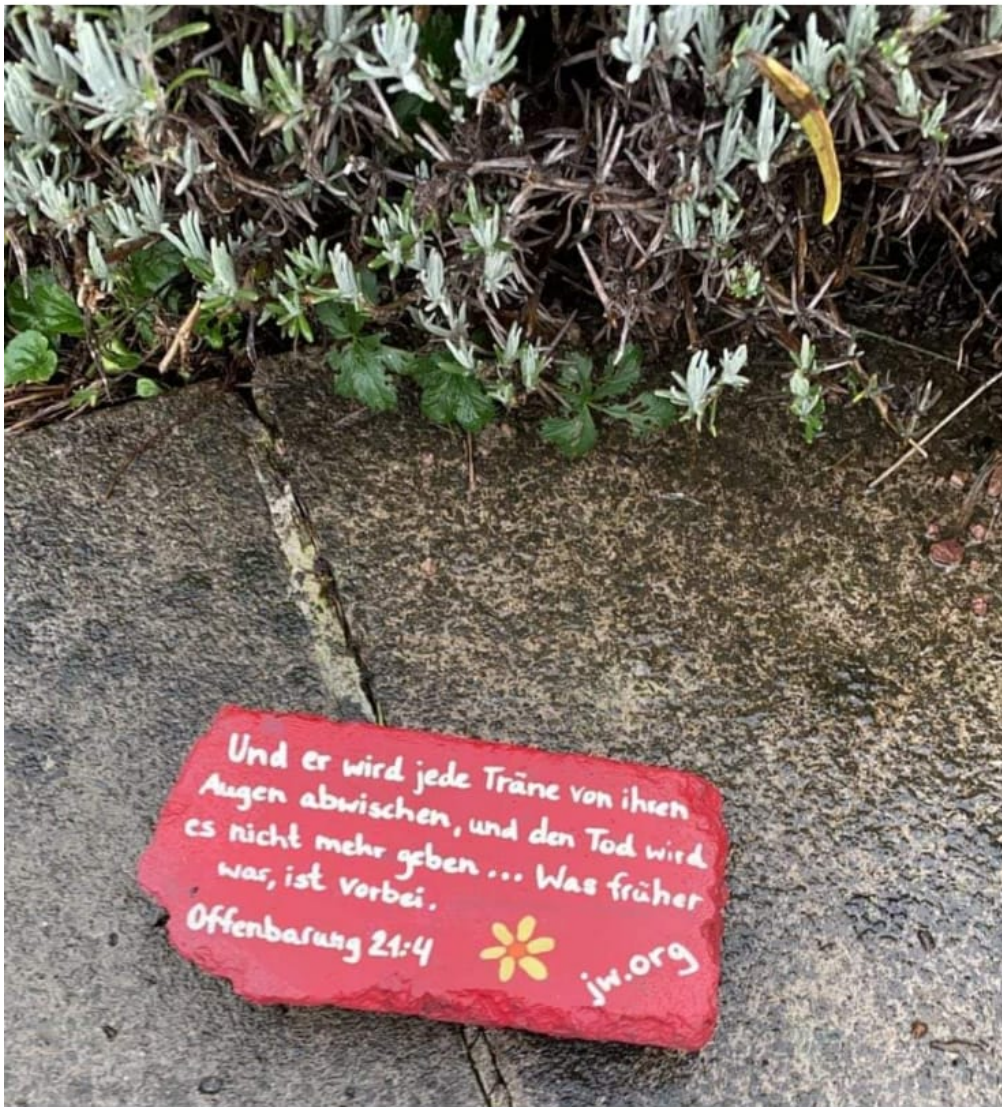 Und er wird jede Träne von ihren
Augen abwischen, und den Tod wird
es nicht mehr geben... Was früher
war, ist vorbei.
Offenbarung 21:4
jw.org